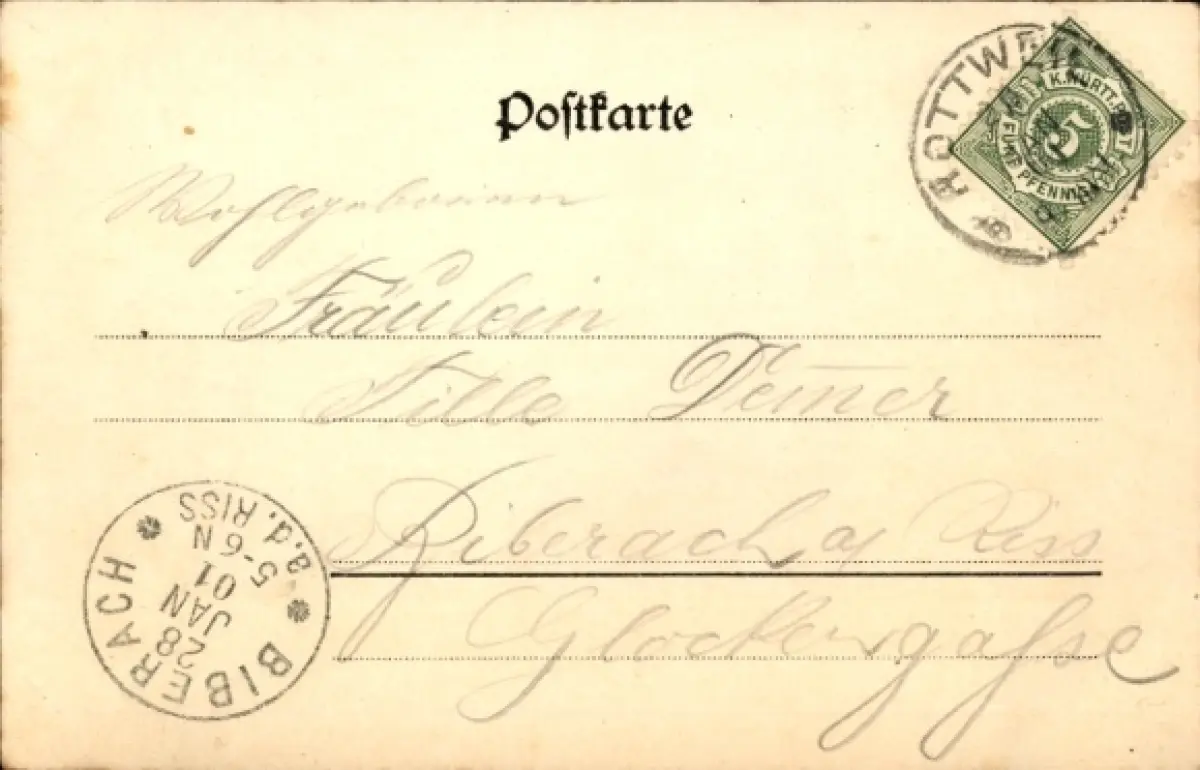 Postkarte
ROTTWEIL
K. WÜRTT. POST
5
FÜNF PFENNIG
Wohlgeboren
Fräulein
Tille Demer
Biberach a/ Riss
Glockengasse
BIBERACH a.d. RISS
28
JAN
01
5-6 N